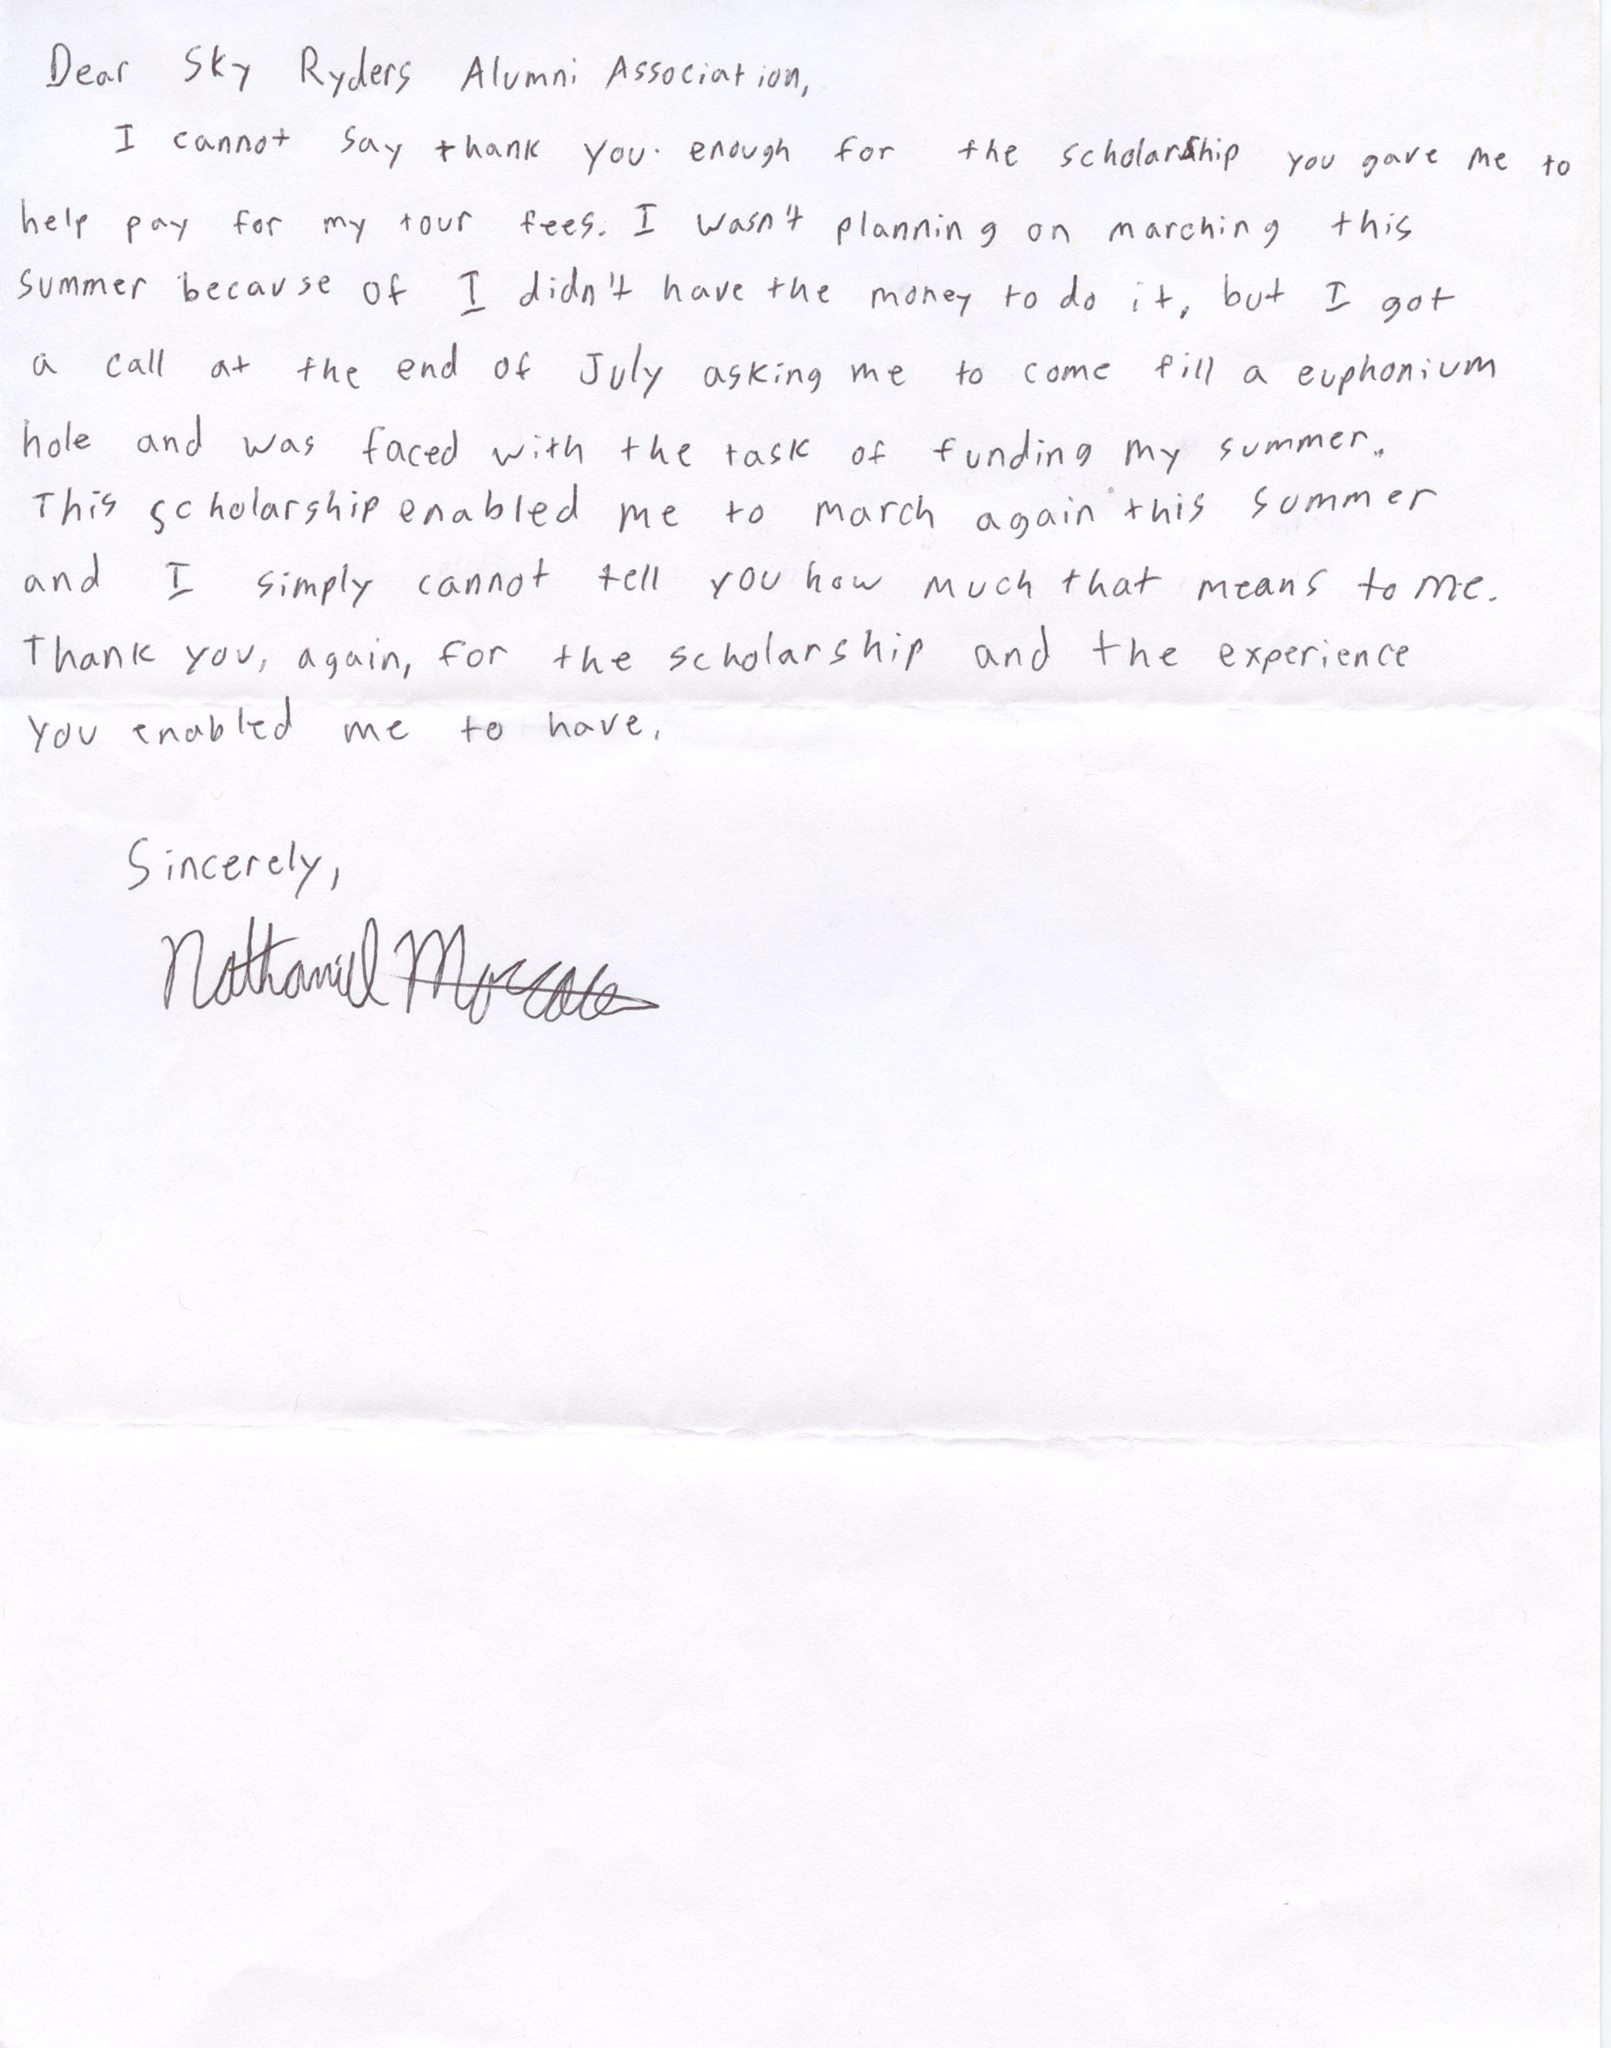 Dear Sky Ryders Alumni Association,
I cannot say thank you enough for the scholarship you gave me to
help pay for my tour fees. I wasn't planning on marching this
summer because of I didn't have the money to do it, but I got
a call at the end of July asking me to come fill a euphonium
hole and was faced with the task of funding my summer.
This scholarship enabled me to march again this summer
and I simply cannot tell you how much that means to me.
Thank you, again, for the scholarship and the experience
you enabled me to have.
Sincerely,
Nathaniel